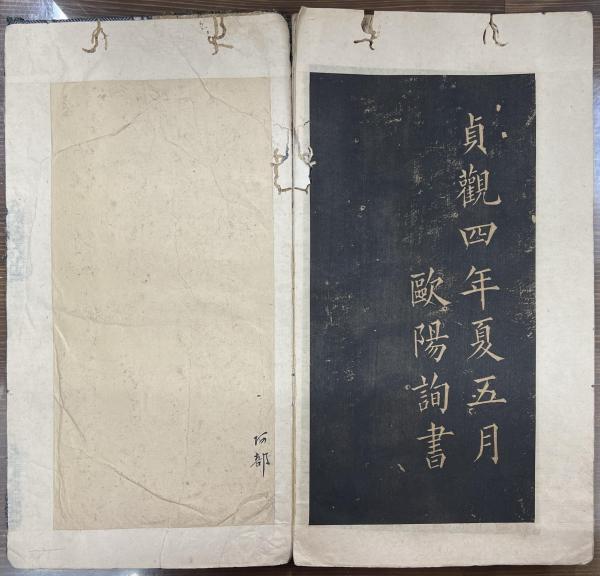 貞觀四年夏五月
歐陽詢書
阿部